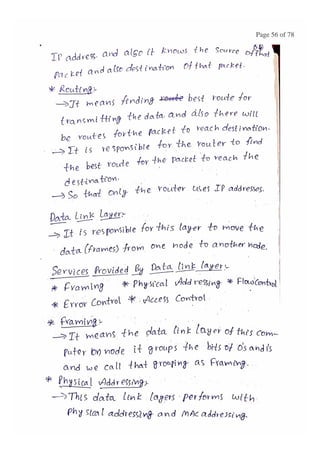 Page 56 of 78
IP address. and also it knows the source of that
packet and also destination of that packet.
* Routing:-
→It means finding route best route for
transmitting the data. and also there will
be routes for the packet to reach destination.
→ It is responsible for the router to find
the best route for the packet to reach the
destination.
→ So that only the router uses IP addresses.
Data Link Layer:-
→ It is responsible for this layer to move the
data (frames) from one node to another node.
Services Provided By Data link layer:-
* Framing * Physical Addressing * Flow Control
* Error Control * Access Control
* Framing:-
→It means the data link layer of this com-
puter (or) node it groups the bits of 0's and 1's
and we call that grouping as Framing.
* Physical Addressing:-
→This data link layers performs with
Physical addressing and MAC addressing.